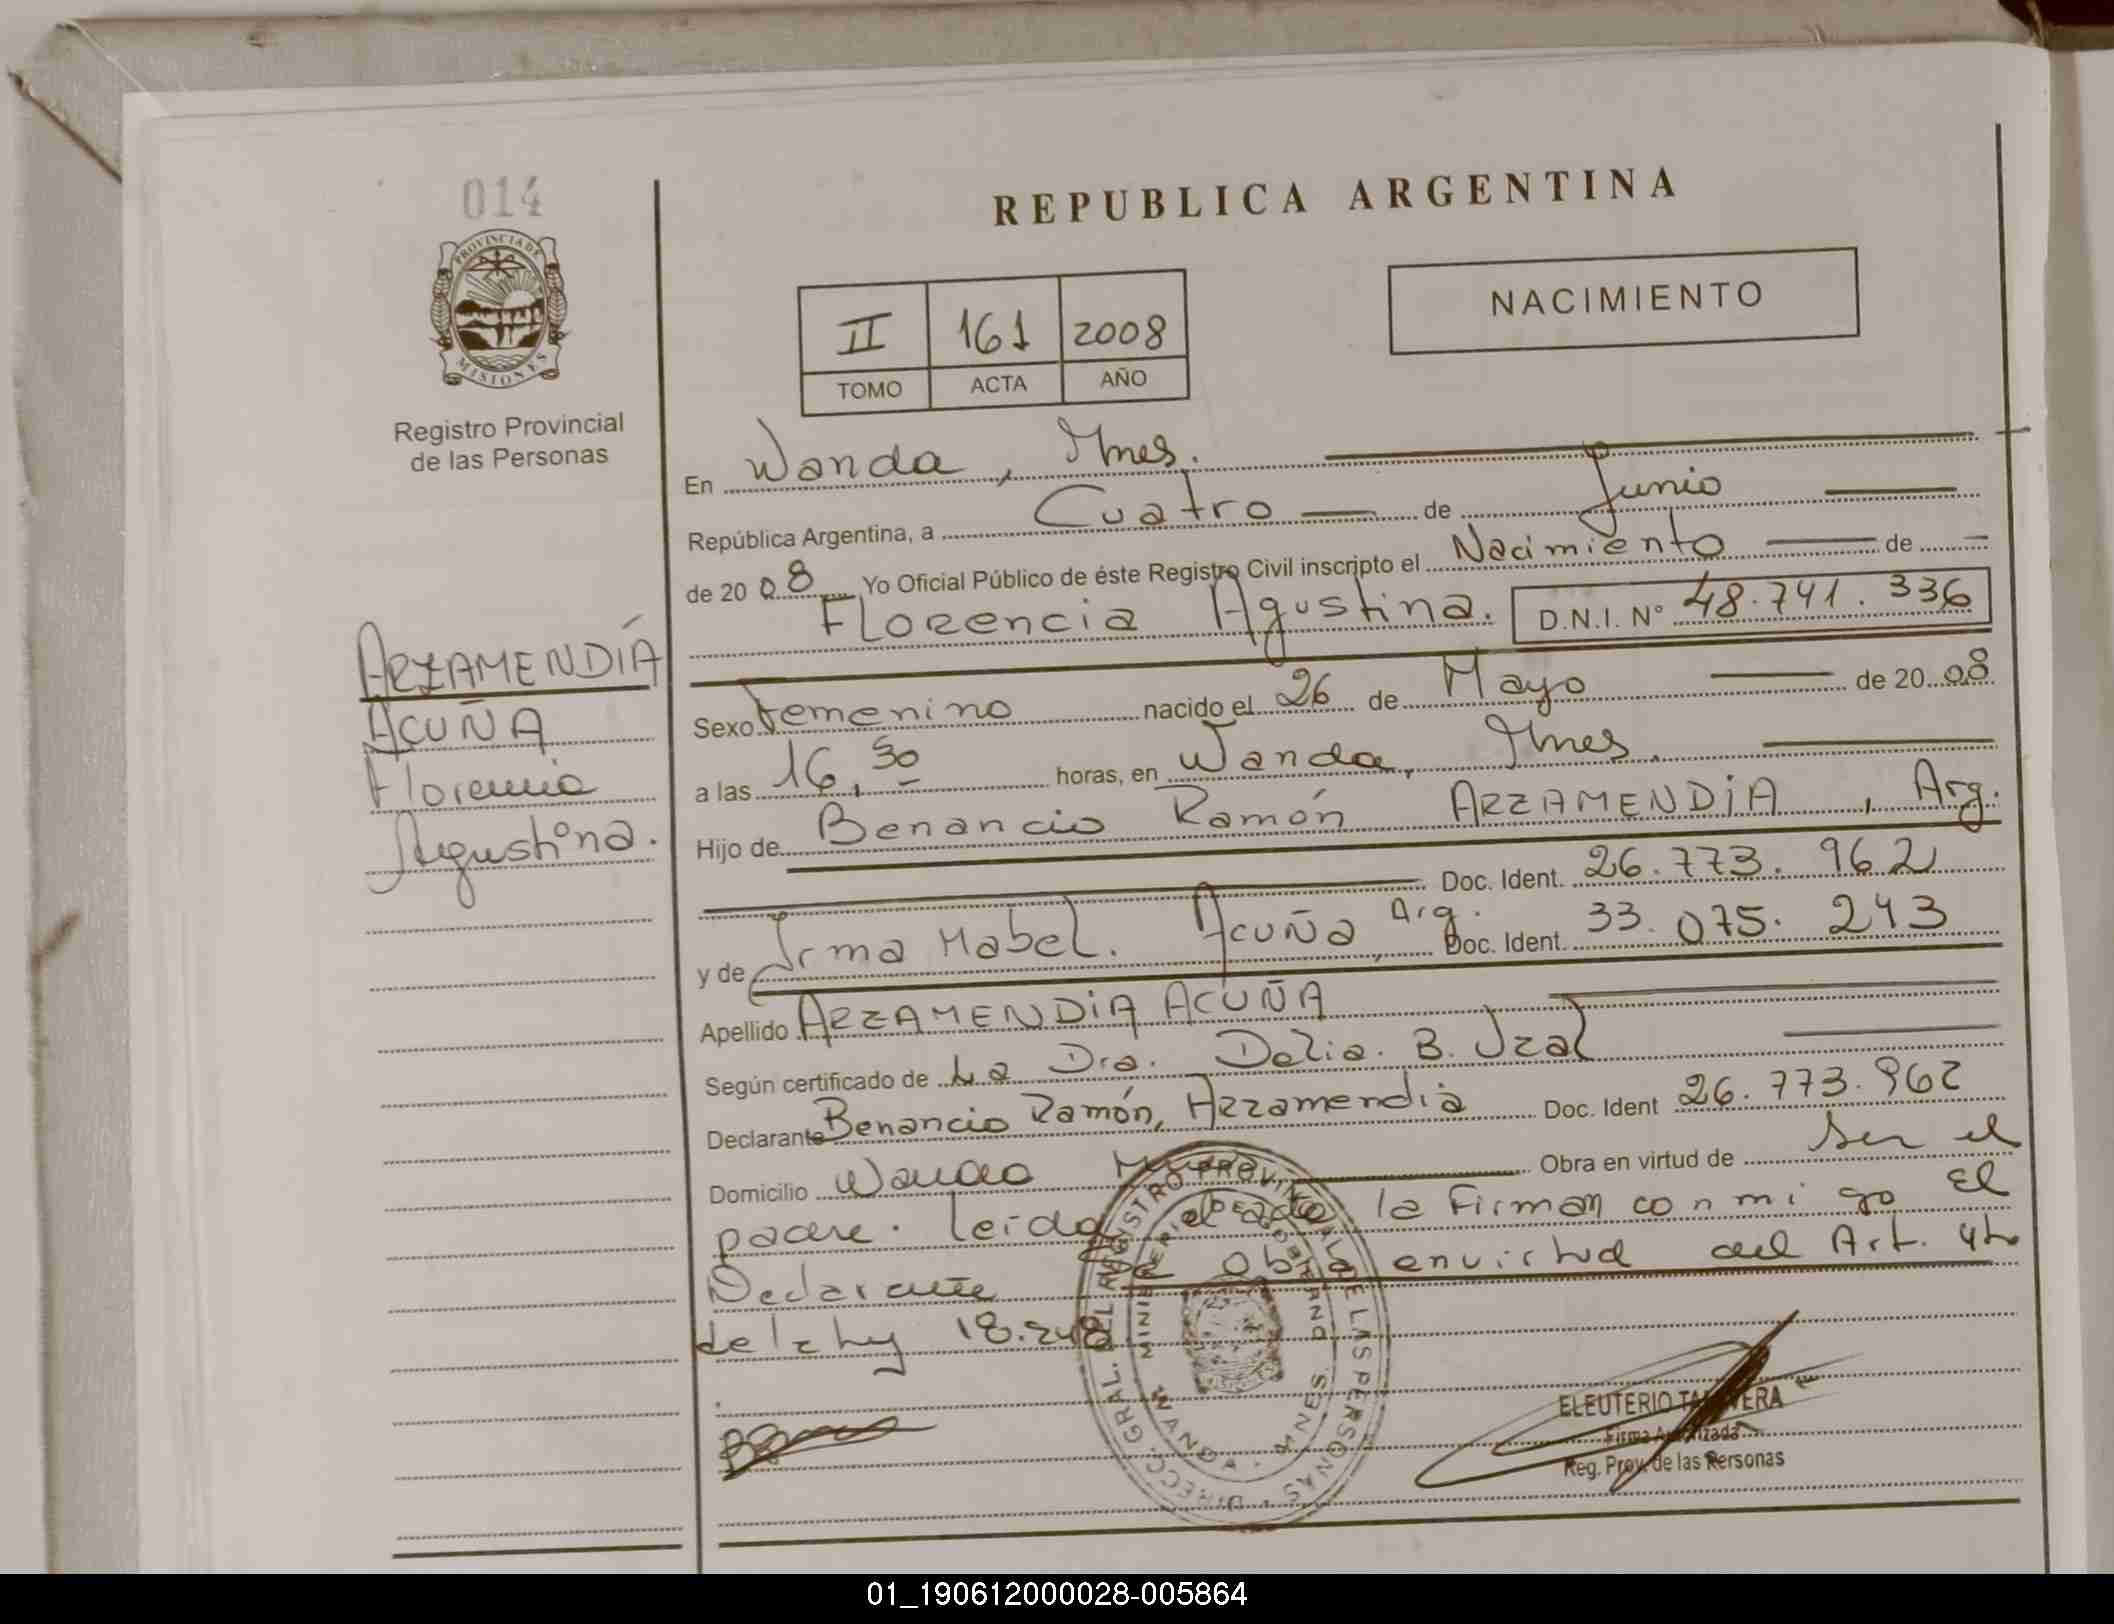 014
PROVINCIA DE
MISIONES
Registro Provincial
de las Personas
ARZAMENDÍA
ACUÑA
Florencia
Agustina.
REPUBLICA ARGENTINA
NACIMIENTO
II 161 2008
TOMO ACTA AÑO
En Wanda, Mnes.
República Argentina, a Cuatro de Junio
de 2008 Yo Oficial Público de éste Registro Civil inscripto el Nacimiento de
Florencia Agustina. D.N.I. N° 48.741.336
Sexo Femenino nacido el 26 de Mayo de 2008
a las 16,30 horas, en Wanda, Mnes.
Hijo de Benancio Ramón ARZAMENDIA, Arg.
Doc. Ident. 26.773.962
y de Irma Mabel. Acuña, Arg. Doc. Ident. 33.075.243
Apellido ARZAMENDIA ACUÑA
Según certificado de La Dra. Delia. B. Izal
Declarante Benancio Ramón, Arzamendia Doc. Ident 26.773.962
Domicilio Wanda Obra en virtud de Ser el
padre. leida el acta la Firman conmigo El
Declarante Obra envirtud del Art.
de la ley 18.248
DIRECC. GRAL. DEL REGISTRO PROVINCIAL DE LAS PERSONAS
MINISTERIO DE GOBIERNO
WANDA - MNES.
ELEUTERIO TALAVERA
Firma Autorizada
Reg. Prov. de las Personas
01_190612000028-005864